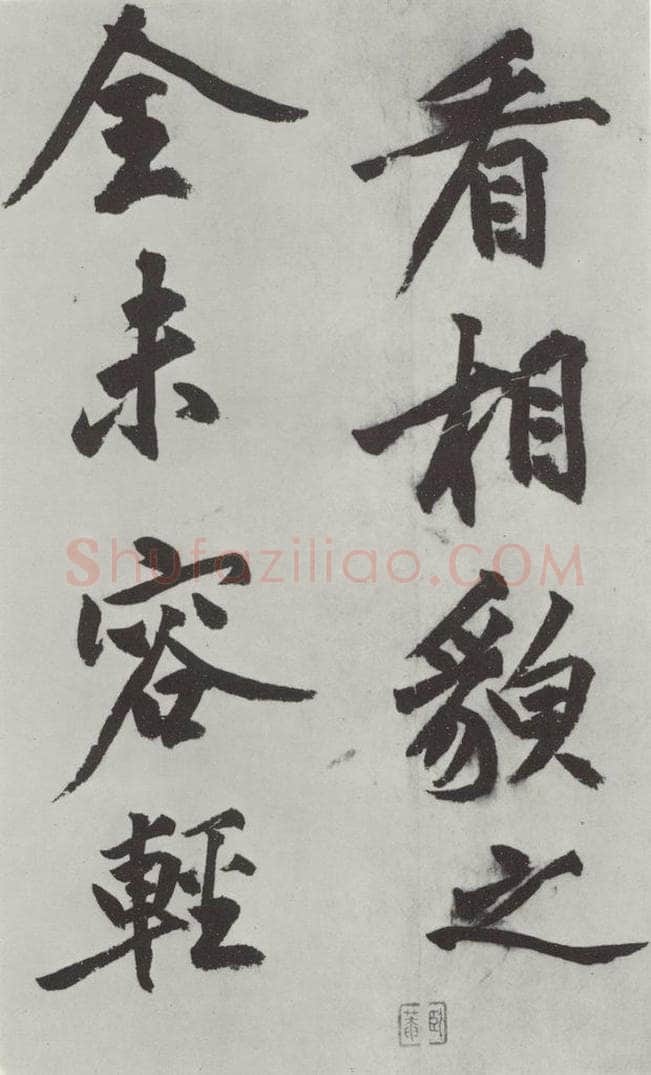 看相貌之
全未容輕
Shufaziliao.COM